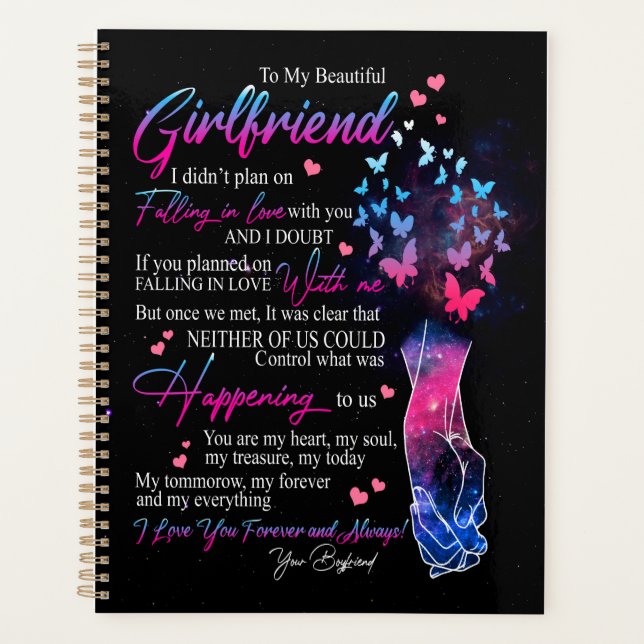 To My Beautiful
Girlfriend
I didn't plan on
Falling in love with you
AND I DOUBT
If you planned on
FALLING IN LOVE With me
But once we met, It was clear that
NEITHER OF US COULD
Control what was
Happening to us
You are my heart, my soul,
my treasure, my today
My tommorow, my forever
and my everything
I Love You Forever and Always!
Your Boyfriend